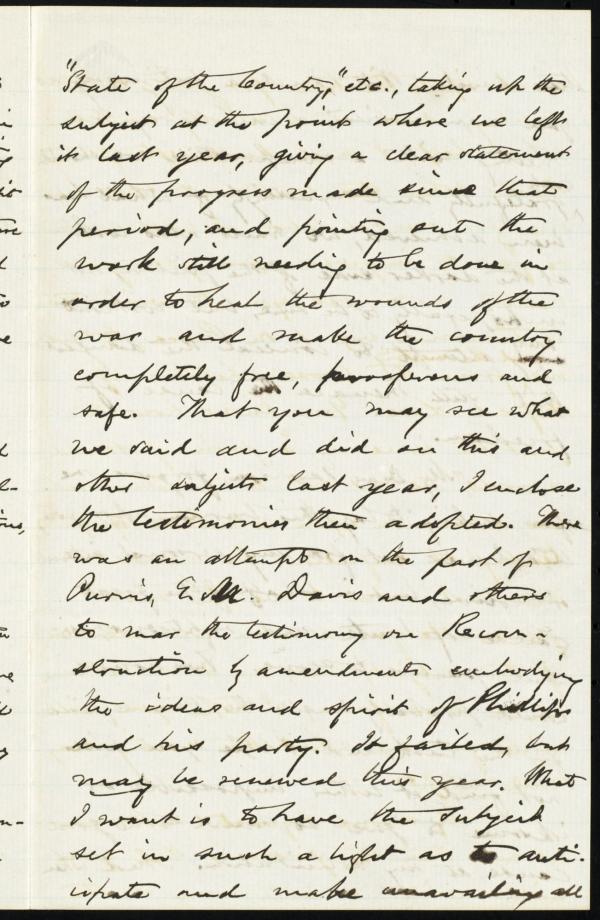 "State of the Country," etc., taking up the
subject at the point where we left
it last year, giving a clear statement
of the progress made since that
period, and pointing out the
work still needing to be done in
order to heal the wounds of the
war and make the country
completely free, prosperous and
safe. That you may see what
we said and did on this and
other subjects last year, I enclose
the testimonies then adopted. There
was an attempt on the part of
Purvis, E. M. Davis and others
to mar the testimony on Recon-
struction by amendments embodying
the ideas and spirit of Phillips
and his party. It failed, but
may be renewed this year. What
I want is to have the subject
set in such a light as to anti-
cipate and make unavailing all